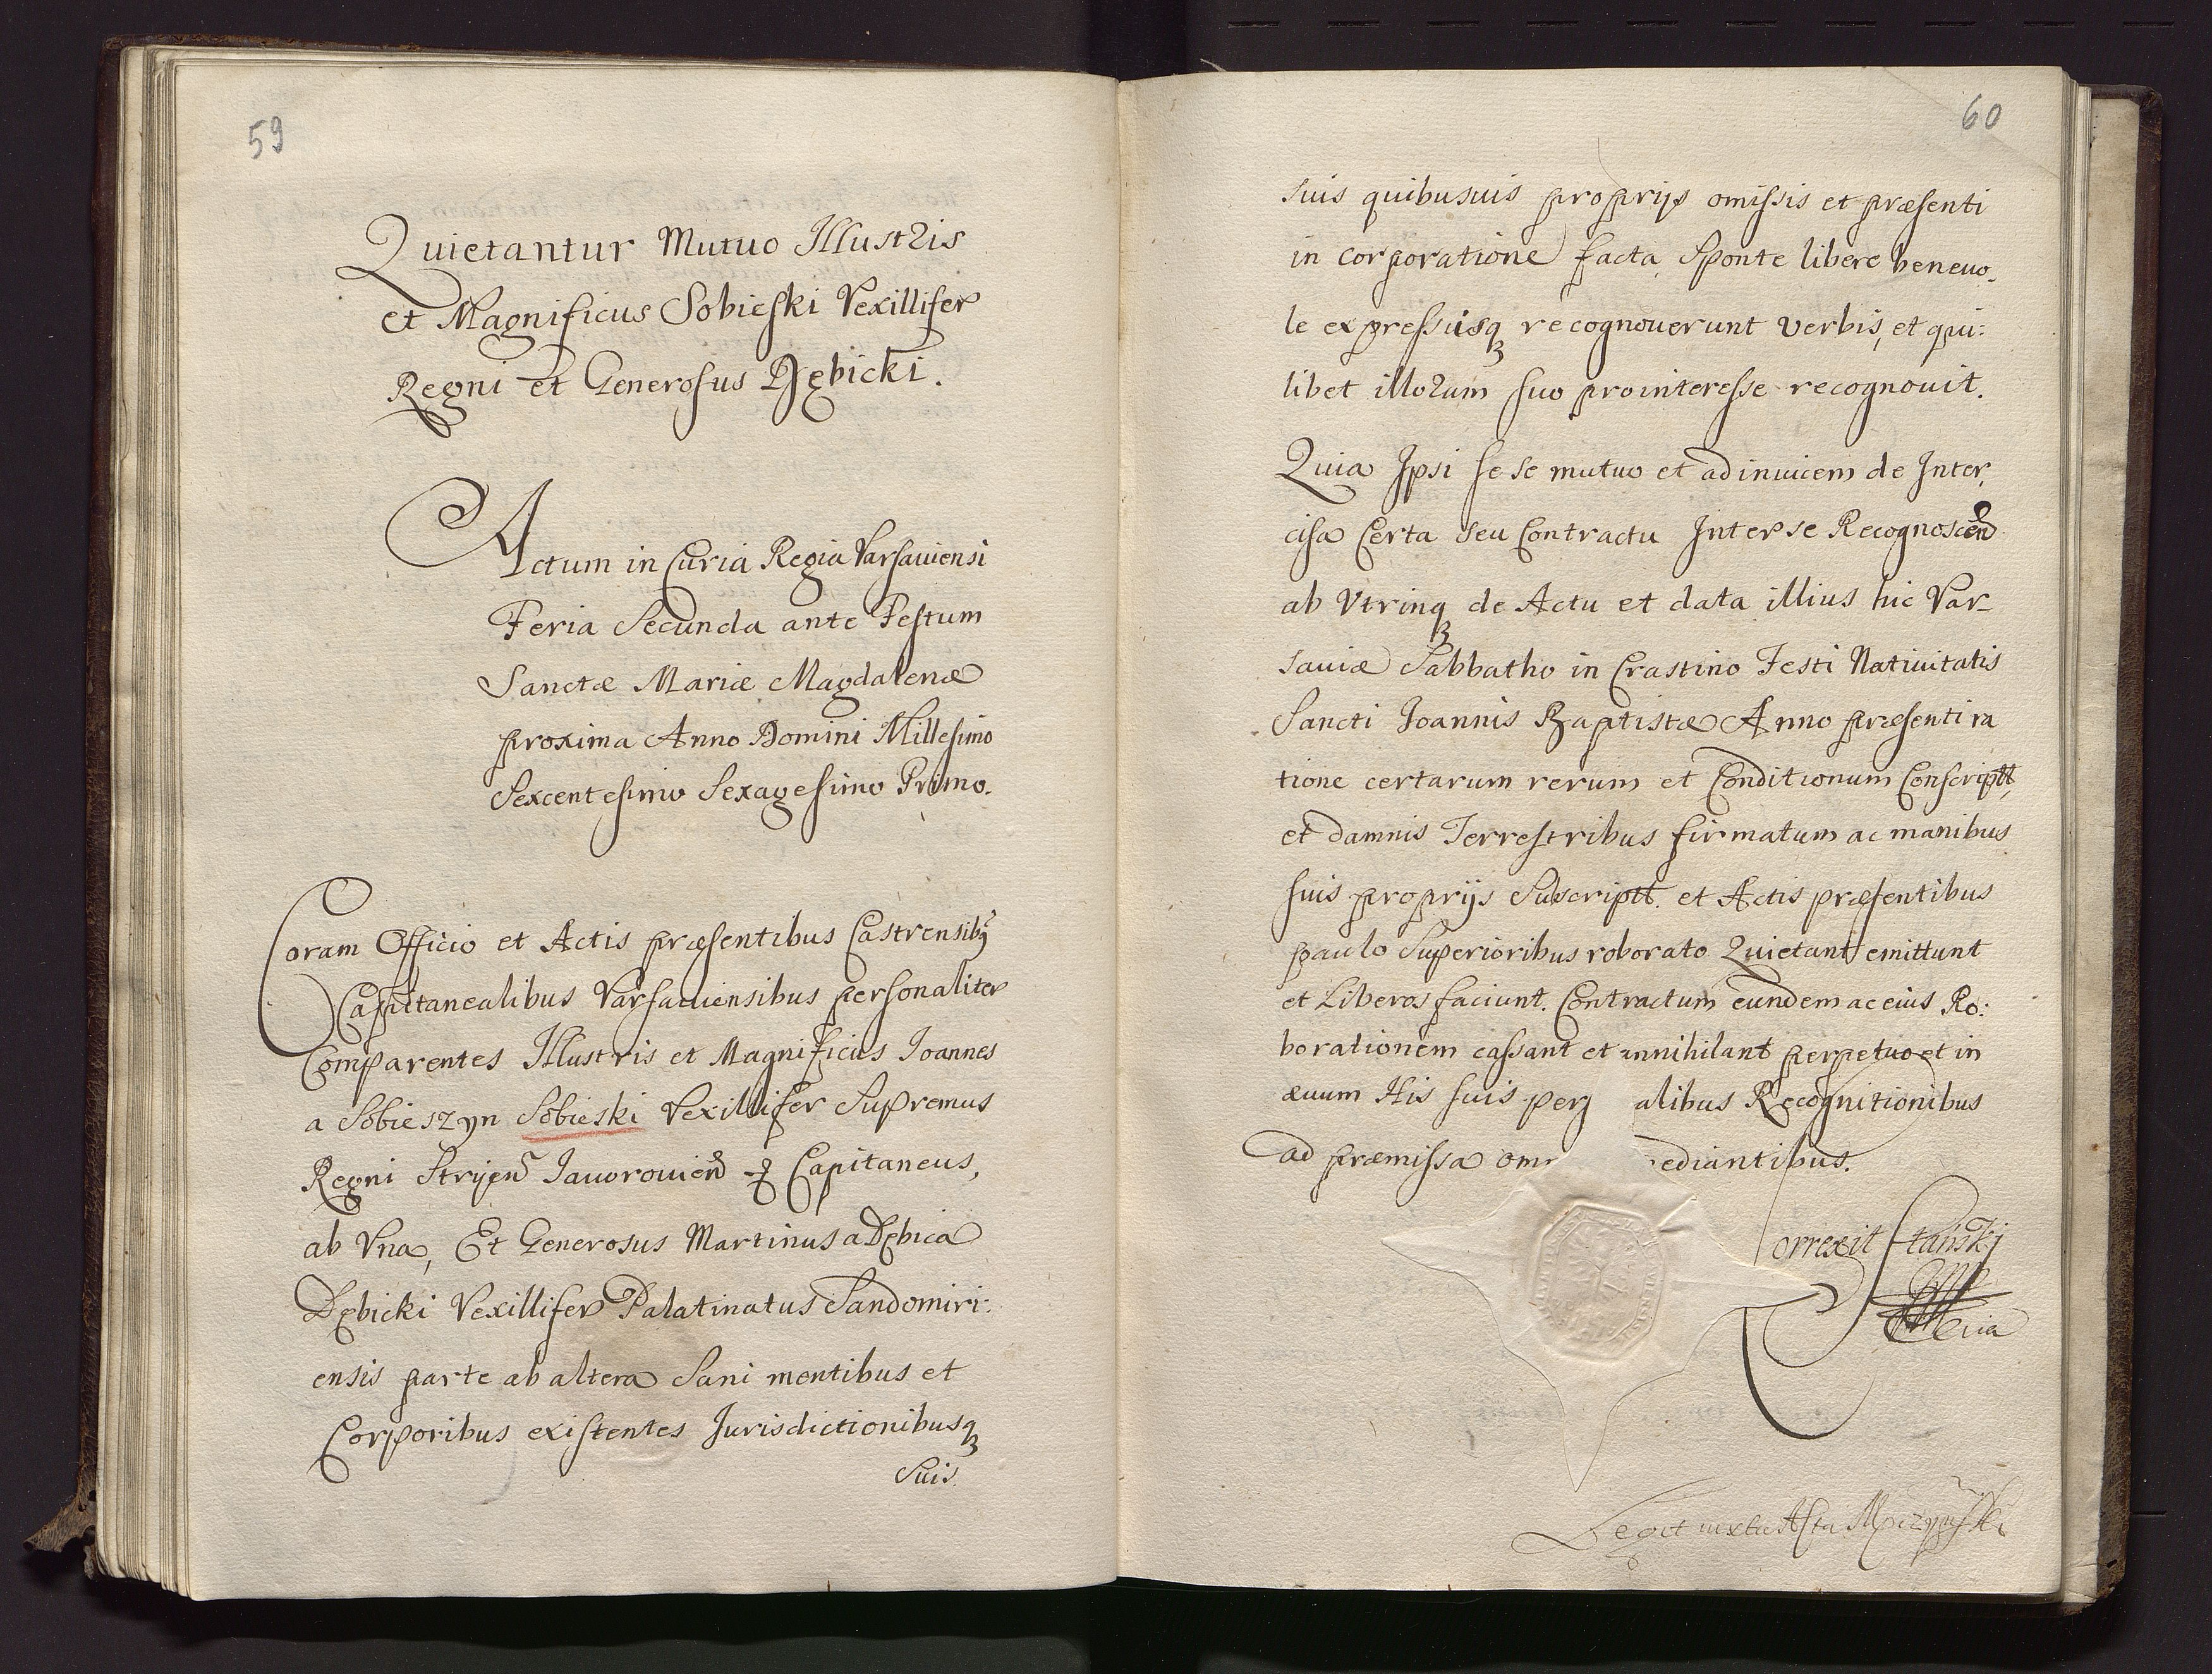 59
Quietantur Mutuo Illustris
et Magnificus Sobieski Vexillifer
Regni et Generosus Dębicki.
Actum in Curia Regia Varsauiensi
Feria Secunda ante Festum
Sanctæ Mariæ Magdalenæ
proxima Anno Domini Millesimo
Sexcentesimo Sexagesimo Primo.
Coram Officio et Actis præsentibus Castrensibq
Capitanealibus Varsauiensibus personaliter
Comparentes Illustris et Magnificus Joannes
a Sobieszyn Sobieski Vexillifer Supremus
Regni Stryen Jauorouien Capitaneus,
ab Vna, Et Generosus Martinus a Dębica
Dębicki Vexillifer Palatinatus Sandomiri:
ensis parte ab altera Sani mentibus et
Corporibus existentes Jurisdictionibusq
Suis.
60
suis quibusuis proprijs omissis et præsenti
in corporatione facta Sponte libere beneuo_
le expressisq recognouerunt verbis, et qui:
libet illorum suo prointeresse recognouit.
Quia Ipsi sese mutuo et adinuicem de Inter,
cisa Certa seu Contractu Inter se Recognoscen
ab Vtrinq de Actu et data illius hic Var_
sauiæ Sabbatho in Crastino Festi Natiuitatis
Sancti Joannis Baptistæ Anno præsenti ra
tione certarum rerum et Conditionum Conscriptt,
et damnis Terrestribus firmatum ac manibus
suis proprijs Subscriptt. et Actis præsentibus
paulo Superioribus roborato Quietant emittunt
et Liberos faciunt. Contractum eundem ac eius Ro:
borationem cassant et annihilant perpetuo et in
æuum His suis per alibus Recognitionibus
ad præmissa om ediantibus.
Correxit Stański
Legit iuxta Acta